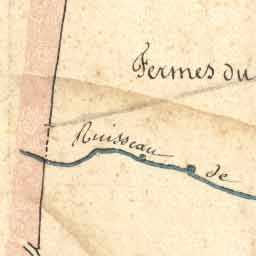 Fermes du
Ruisseau de